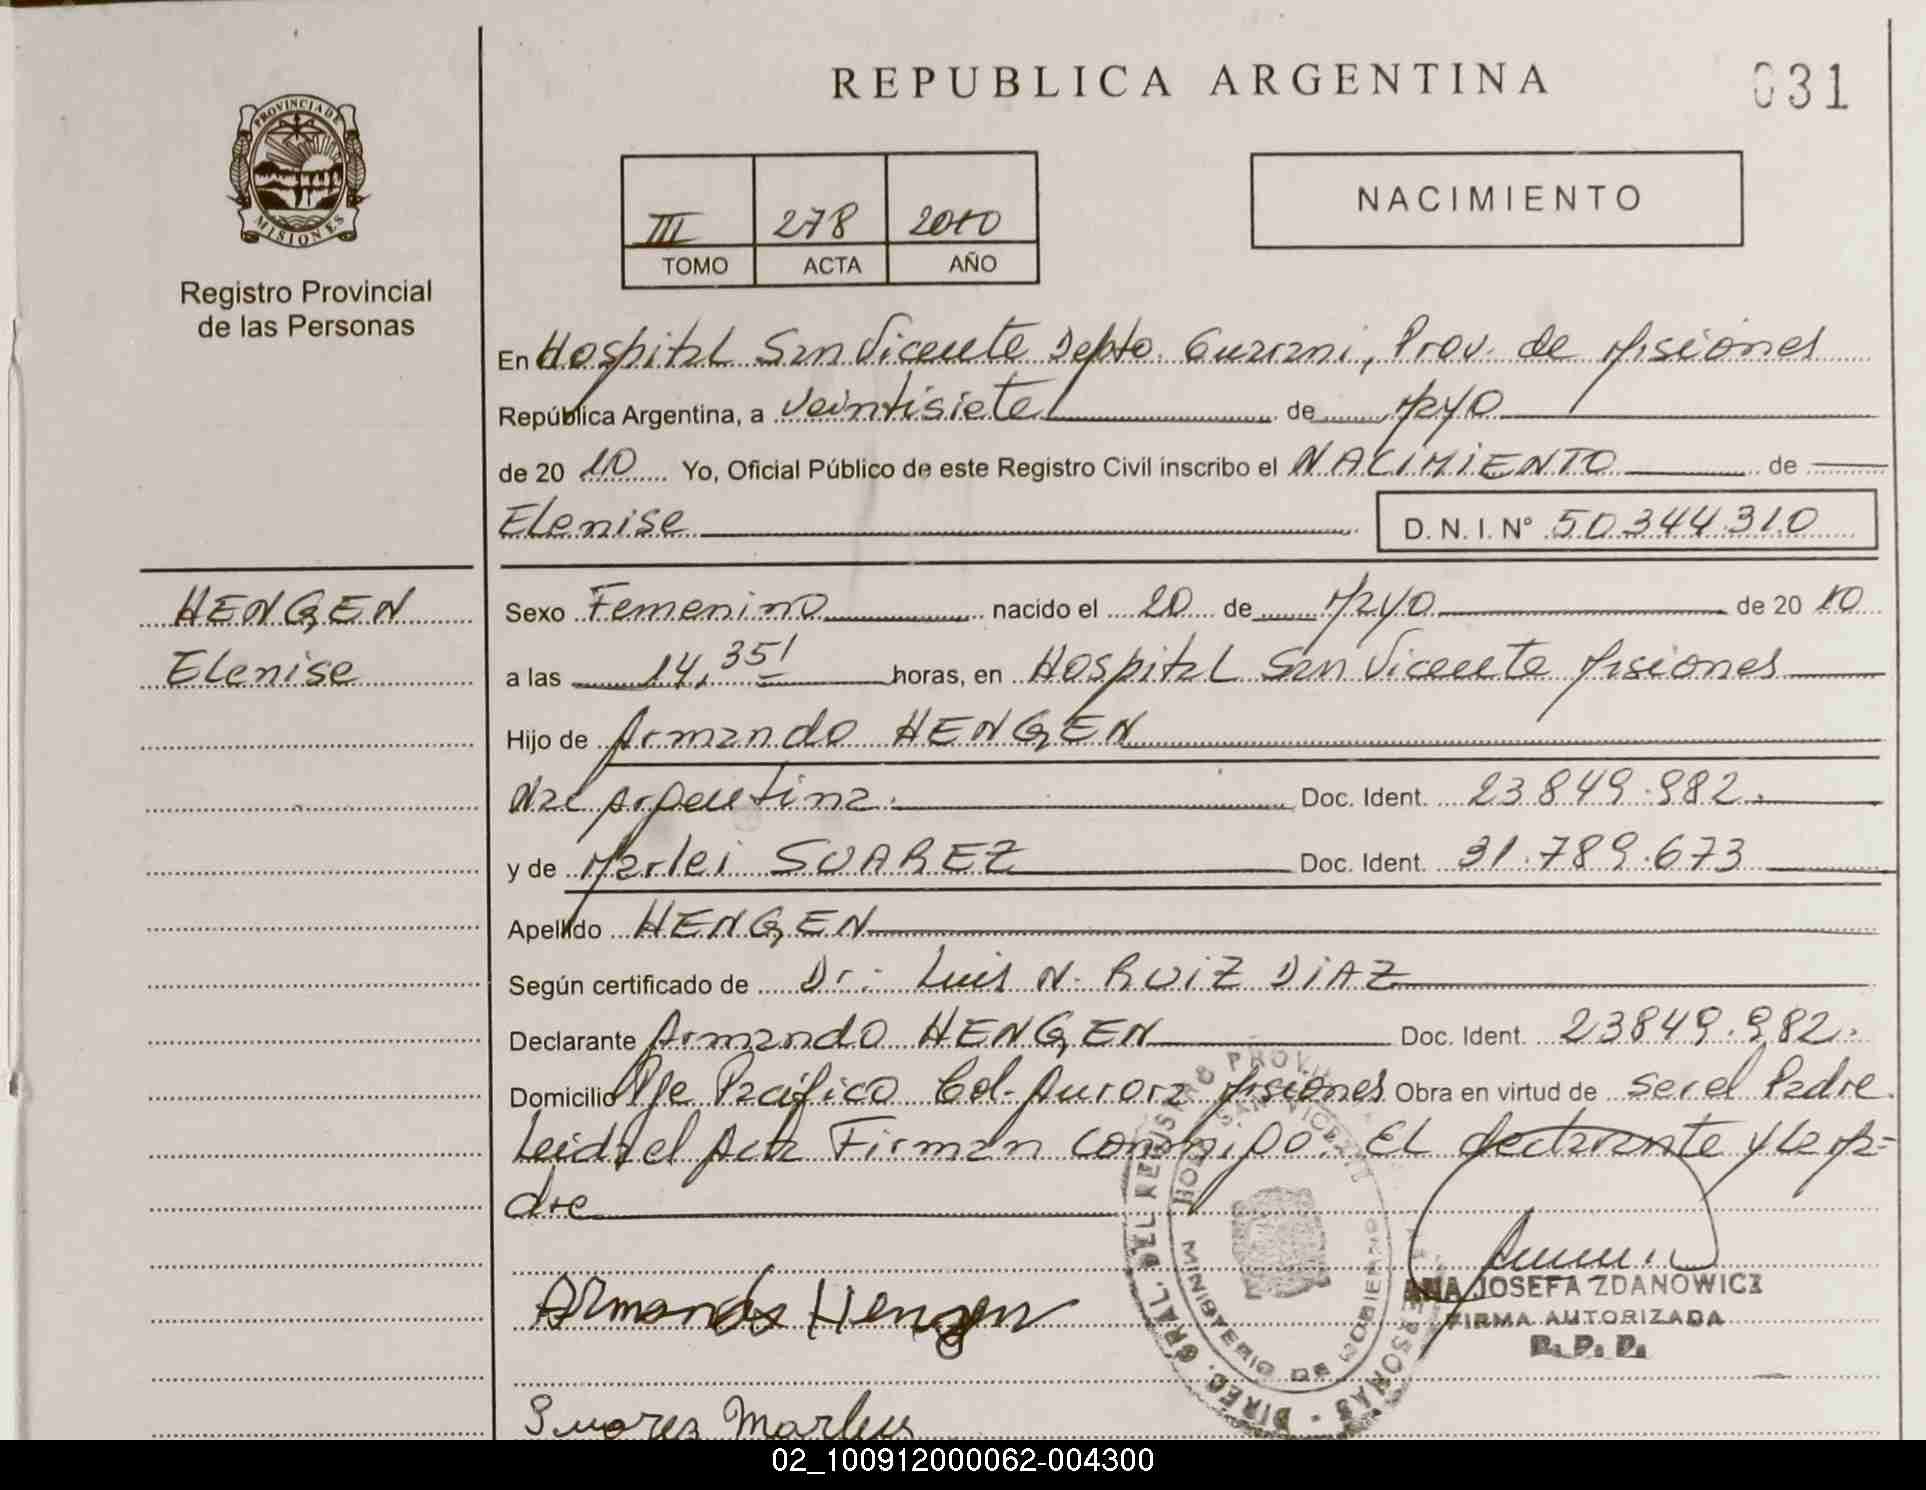 REPUBLICA ARGENTINA
031
PROVINCIA DE
MISIONES
Registro Provincial
de las Personas
III 278 2010
TOMO ACTA AÑO
NACIMIENTO
En Hospital San Vicente Depto. Guarani, Prov. de Misiones
República Argentina, a veintisiete de Mayo
de 20 10 Yo, Oficial Público de este Registro Civil inscribo el NACIMIENTO de
Elenise D. N. I. N° 50.344.310
HENGEN
Elenise
Sexo Femenino nacido el 20 de Mayo de 20 10
a las 14,35' horas, en Hospital San Vicente Misiones
Hijo de Armando HENGEN
Nac Argentina. Doc. Ident. 23.849.982.
y de Marlei SUAREZ Doc. Ident. 31.789.673
Apellido HENGEN
Según certificado de Dr. Luis N. RUIZ DIAZ
Declarante Armando HENGEN Doc. Ident. 23849.982.
Domicilio Pje Pacífico Col-Aurora Misiones Obra en virtud de ser el Padre.
Leida el Acta Firman conmigo. El declarante y la Ma=
dre
Armando Hengen
ANA JOSEFA ZDANOWICZ
FIRMA AUTORIZADA
R. P. P.
DIREC. GRAL. DEL REGISTRO PROV. PERSONAS
MINISTERIO DE GOBIERNO
Suarez
02_100912000062-004300